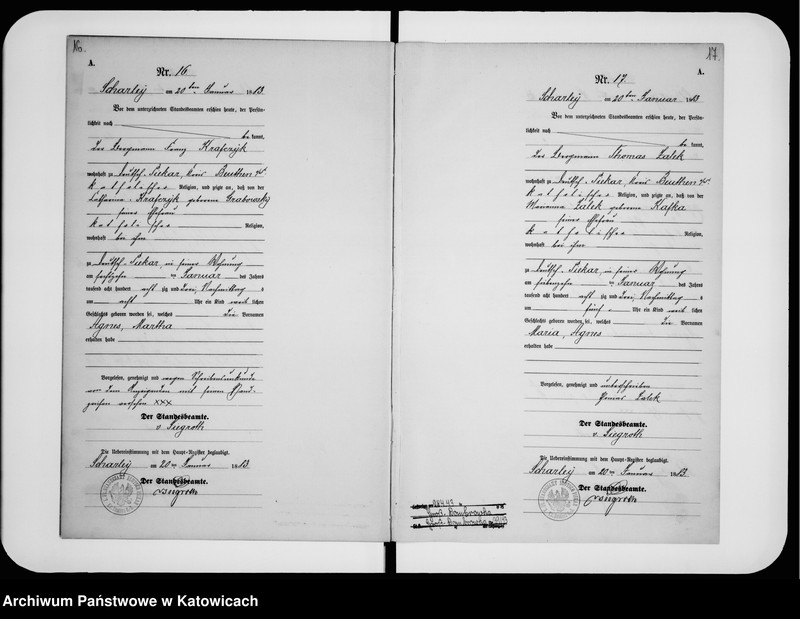 16.
A.
Nr. 16
Scharley am 20ten Januar 1883
Vor dem unterzeichneten Standesbeamten erschien heute, der Persön-
lichkeit nach
be kannt,
Der Bergmann Franz Krafczyk
wohnhaft zu Deutsch-Piekar, Kreis Beuthen
katholischer Religion, und zeigte an, daß von der
Katharina Krafczyk geborene Grabowsky
seiner Ehefrau
katholischer Religion,
wohnhaft bei ihm
zu Deutsch-Piekar, in seiner Wohnung
am sechszehn ten Januar des Jahres
tausend acht hundert acht zig und drei, Nachmittag s
um acht Uhr ein Kind weib lichen
Geschlechts geboren worden sei, welches Die Vornamen
Agnes, Martha
erhalten habe
Vorgelesen, genehmigt und wegen Schreibensunkunde
von dem Anzeigenden mit seinem Hand-
zeichen versehen XXX
Der Standesbeamte.
v. Siegroth
Die Uebereinstimmung mit dem Haupt-Register beglaubigt.
Scharley am 20ten Januar 1883
Der Standesbeamte.
v. Siegroth
17.
A.
Nr. 17
Scharley am 20ten Januar 1883
Vor dem unterzeichneten Standesbeamten erschien heute, der Persön-
lichkeit nach
be kannt,
Der Bergmann Thomas Zalek
wohnhaft zu Deutsch-Piekar, Kreis Beuthen
katholischer Religion, und zeigte an, daß von der
Marianna Zalek geborene Kafka
seiner Ehefrau
katholischer Religion,
wohnhaft bei ihm
zu Deutsch-Piekar, in seiner Wohnung
am siebenzehn ten Januar des Jahres
tausend acht hundert acht zig und drei, Nachmittag s
um fünf Uhr ein Kind weib lichen
Geschlechts geboren worden sei, welches Die Vornamen
Maria, Agnes
erhalten habe
Vorgelesen, genehmigt und unterschrieben
Zalek
Der Standesbeamte.
v. Siegroth
Die Uebereinstimmung mit dem Haupt-Register beglaubigt.
Scharley am 20ten Januar 1883
Der Standesbeamte.
v. Siegroth
Archiwum Państwowe w Katowicach